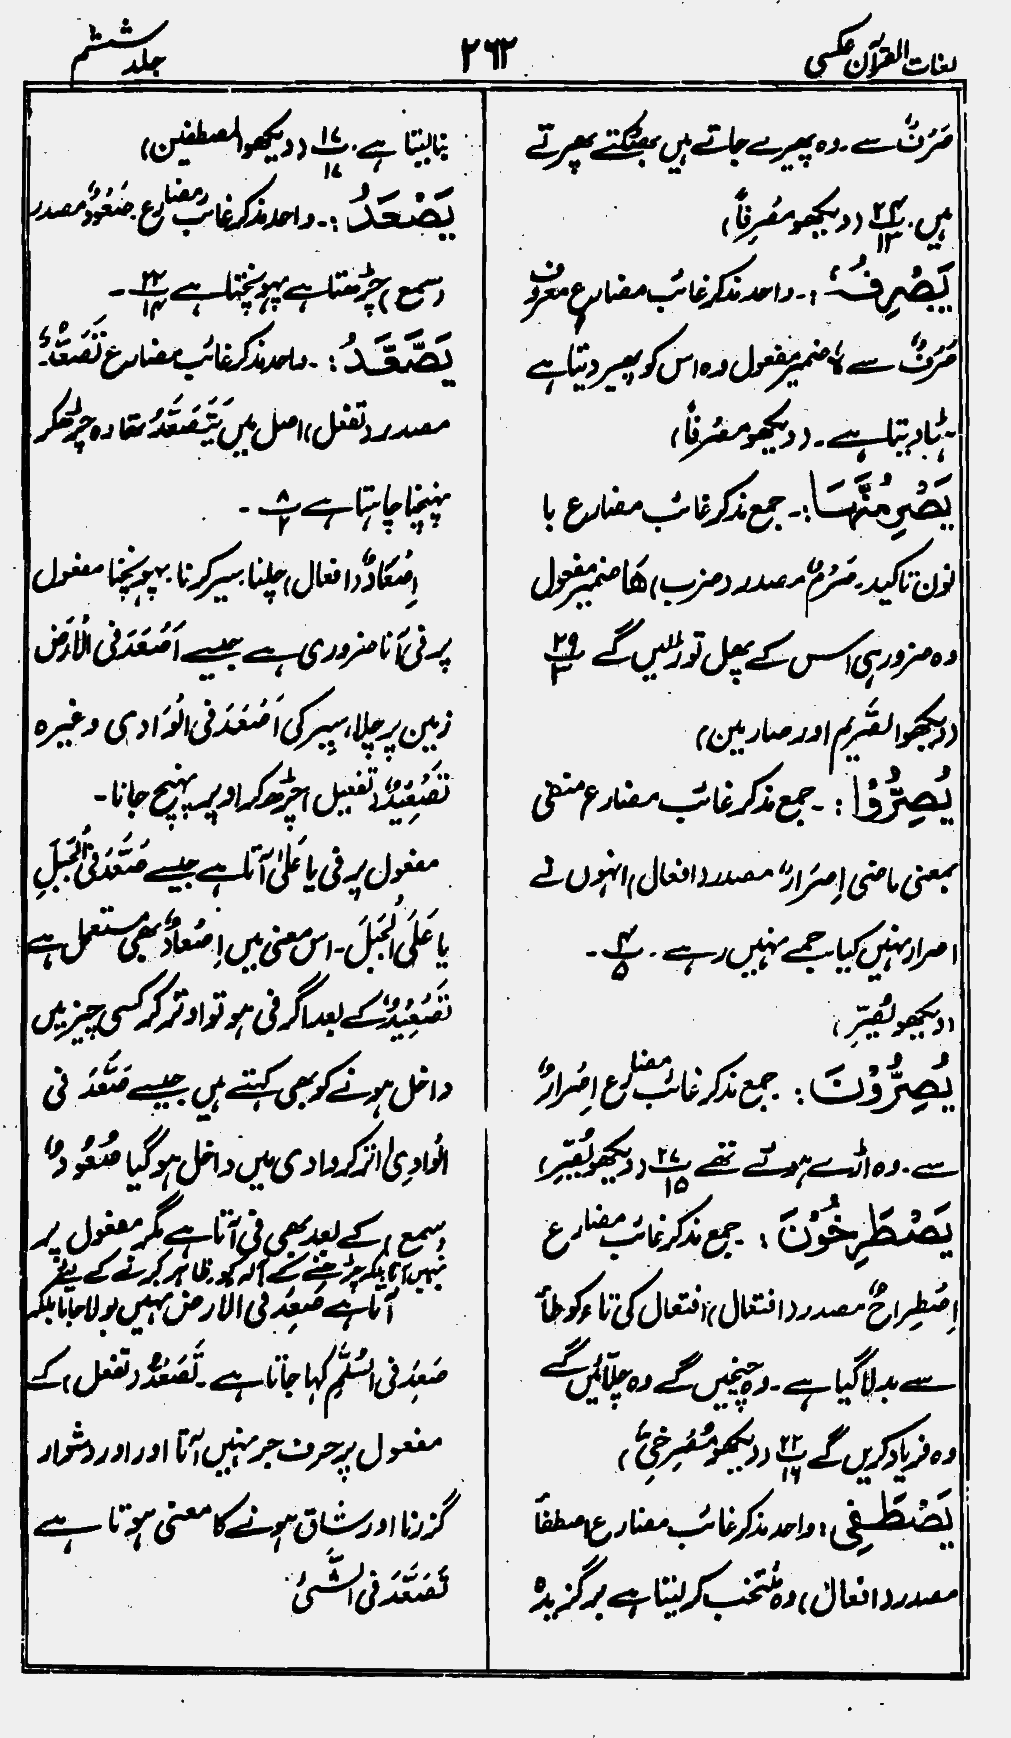 لغات القرآن عکسی
۲۶۲
جلد ششم
صَرْفٌ سے۔ وہ پھیرے جاتے ہیں بھٹکتے پھرتے
ہیں۔ ۲۴/۱۲ (دیکھو مَصْرِفًا)
يَصْرِفُہٗ :۔ واحد مذکر غائب مضارع معروف
صَرْفٌ سے ہٗ ضمیر مفعول وہ اس کو پھیر دیتا ہے
ہٹا دیتا ہے۔ (دیکھو مصرفاً)
يَصْرِمُنَّهَا :۔ جمع مذکر غائب مضارع با
نون تاکید۔ صَرْمٌ مصدر (ضرب) ھَا ضمیر مفعول
وہ ضرور ہی اس کے پھل توڑ لیں گے ۲۹/۳
(دیکھو الصَّرِیم اور صارمین)
يُصِرُّوْا :۔ جمع مذکر غائب مضارع منفی
بمعنی ماضی اِصْرَارٌ مصدر (افعال) انہوں نے
اصرار نہیں کیا۔ جمے نہیں رہے۔ ۴/۵۔
(دیکھو نُصِرِّ)
يُصِرُّوْنَ : جمع مذکر غائب مضارع اِصْرَارٌ
سے۔ وہ اڑے ہوئے تھے ۲۷/۱۵ (دیکھو نُصِرِّ)
يَصْطَرِخُوْنَ : جمع مذکر غائب مضارع
اِصْطِراخٌ مصدر (افتعال) افتعال کی تاء کو طاً
سے بدلا گیا ہے۔ وہ چیخیں گے وہ چلّائیں گے
وہ فریاد کریں گے ۲۲/۱۶ (دیکھو مُصْرِخِیَّ)
يَصْطَفِيْ : واحد مذکر غائب مضارع اصطفاً
مصدر (افعال) وہ مُنتخب کر لیتا ہے برگزیدہ
بنا لیتا ہے۔ ۱۷/۱۷ (دیکھو المصطفین)
يَصْعَدُ :۔ واحد مذکر غائب مضارع صَعُوْدٌ مصدر
(سمع) چڑھتا ہے پہونچتا ہے ۲۲/۱۴۔
يَصَّعَّدُ :۔ واحد مذکر غائب مضارع تَصَعُّدٌ
مصدر (تفعل) اصل میں یَتَصَعَّدُ تھا وہ چڑھ کر
پہنچنا چاہتا ہے ۸/۲۔
اِصْعَادٌ (افعال) چلنا، سیر کرنا، پہونچنا مفعول
پر فی آنا ضروری ہے جیسے اَصْعَدَ فی الْاَرْضِ
زمین پر چلا، سیر کی اَصْعَدَ فی الْوَادی وغیرہ
تَصْعِیْدٌ (تفعیل) چڑھ کر اوپر پہنچ جانا۔
مفعول پر فی یا عَلیٰ آتا ہے جیسے صَعَّدَ فی الْجَبَلِ
یا عَلَی الْجَبَلِ۔ اس معنی میں اِصْعَادٌ بھی مستعمل ہے
تَصْعِیْدٌ کے بعد اگر فی ہو تو اتر کر کسی چیز میں
داخل ہونے کو بھی کہتے ہیں جیسے صَعَّدَ فی
الْوادِی اتر کر وادی میں داخل ہو گیا صُعُوْدٌ
(سمع) کے بعد بھی فی آتا ہے مگر مفعول پر
نہیں آتا بلکہ چڑھنے کے آلہ کو ظاہر کرنے کے لیے
آتا ہے صَعِدَ فی الارض نہیں بولا جاتا بلکہ
صَعِدَ فی السُّلَّمِ کہا جاتا ہے۔ تَصَعُّدٌ (تفعل) کے
مفعول پر حرف جر نہیں آتا اور اور دشوار
گزرنا اور شاق ہونے کا معنی ہوتا ہے
تَصَعَّدَ فی الشَّیْءِ